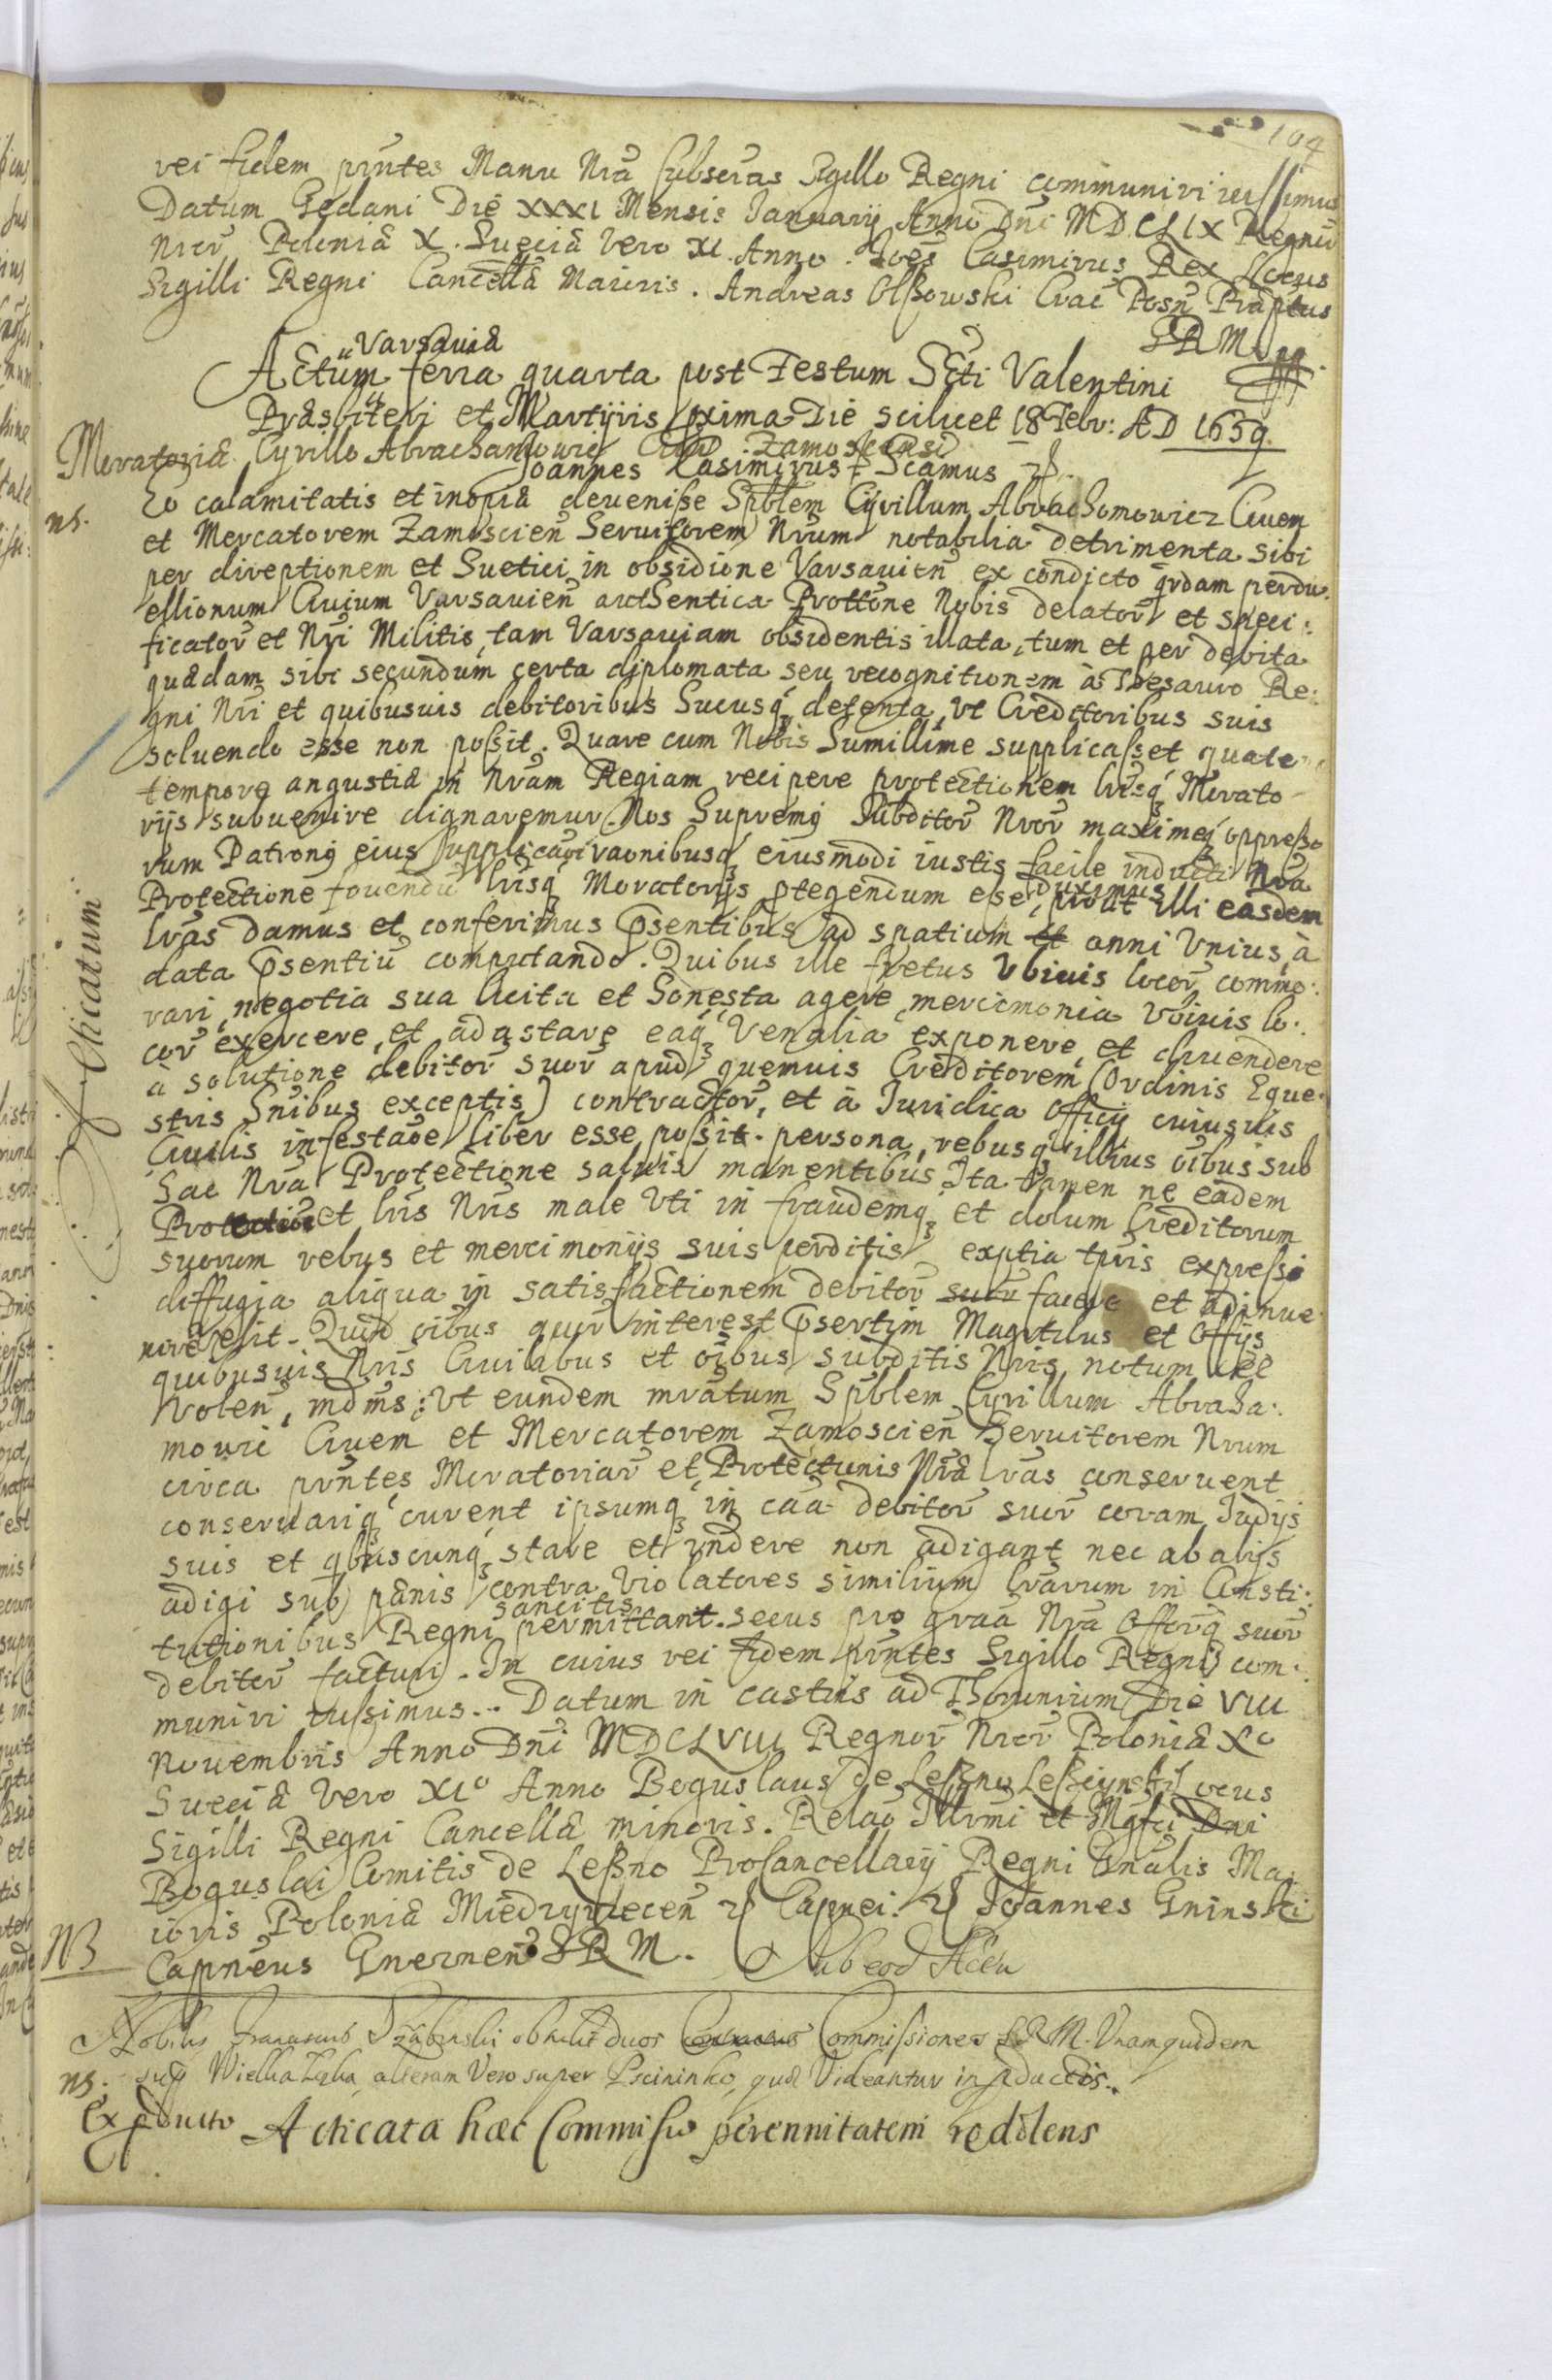 104
rei fidem pntes Manu Nrã subscras Sigillo Regni communiri iussimus
Datum Gedani Die XXXI Mensis Januarij Anno Dni MDCLIX Regnor̃
Nror̃ Poloniæ X. Sueciæ Vero XI. Anno. Joẽs Casimirus Rex Locus
Sigilli Regni Cancellæ Maioris. Andreas Olszowski Crac Posn Præptus
SRM
Varsauiæ
Actum feria quarta post Festum Scti Valentini
Præsbiteri et Martijris pxima Die scilicet 18 Febr: AD 1659
Moratoriæ Cyrillo Abrachamowic Civi Zamoscensi
Joannes Casimirus Scamus
ns.
Eo calamitatis et inopiæ deuenisse Spblem Cyrillum Abrachomowicz Ciuem
et Mercatorem Zamoscien̄ Seruitorem Nrum notabilia detrimenta sibi
per direptionem et Suetici in obsidione Varsauien̄ ex condicto qrdam perdu.
ellionum Ciuium Varsauien̄ authentica Prottõne Nobis delator̃ et speci:
ficator̃ et Nri Militis, tam Varsauiam obsidentis illata, tum et per debita
quædam sibi secundum certa diplomata seu recognitionem à Thesauro Re:
gni Nri et quibusuis debitoribus hucusq detenta, vt Creditoribus suis
soluendo esse non possit. Quare cum Nobis humillime supplicasset quate
tempore angustiæ in Nram Regiam recipere protectionem lrisq Morato
rijs subuenire dignaremur. Nos Supremq Subditor̃ Nror̃ maximeq oppresso
rum Patronq eius supplicaõi raonibusq eiusmodi iustis facile inducti Nra
Protectione fouendũ lrisq Moratorijs ptegendum esse duximus, prout illi easdem
lras damus et conferimus psentibus ad spatium anni Vnius, à
data psentiũ computando. Quibus ille fretus Vbiuis locor̃ commo:
rari, negotia sua licita et honesta agere, mercimonia Vbiuis lo:
cor̃ exercere, et adastare eaq Venalia exponere, et diuendere
à solutione debitor̃ suor̃ apud quemuis Creditorem (Ordinis Eque.
stris hnibus exceptis) contractor̃, et à Iuridica Officij cuiusuis
Ciuilis infestaõe liber esse possit. persona, rebusq illius oibus sub
hac Nra Protectione saluis manentibus. Ita tamen ne eadem
Protectione et lris Nris male Vti in fraudemq et dolum Creditorum
suorum rebus et mercimonijs suis perditis, exptia tpris expressi
diffugia aliqua in satisfactionem debitor̃ suor̃ facere et adinue
nire velit. Quod oibus quor̃ interest psertim Magrtibus et Offijs
quibusuis Nris Ciuilibus et oibus subditis Nris notum ẽe
Volen̄, mdms: Vt eundem mratum Spblem Cyrillum Abraha:
mowic Ciuem et Mercatorem Zamoscien̄ Seruitorem Nrum
circa pntes Moratoriar̃ et Protectionis Nræ lras conseruent
conseruariq curent ipsumq in caã debitor̃ suor̃ coram Iudijs
suis et qbuscunq stare et rndere non adigant nec ab alijs
adigi sub pænis contra Violatores similium lrarum in Consti:
tutionibus Regni sancitis permittant. secus pro graã Nra Offorq suor̃
debitor̃ facturi. In cuius rei fidem pntes Sigillo Regni com:
muniri iussimus... Datum in castris ad Thorunium Die VIII
Nouembris Anno Dni MDCLVIII Regnor̃ Nror̃ Poloniæ Xo
Sueciæ Vero XIo Anno Boguslaus de Leszno Leszczynski Locus
Sigilli Regni Cancellæ minoris. Relaõ Illrmi et Mgfci Dni
Boguslai Comitis de Leszno ProCancellarij Regni Gnalis Ma:
ioris Poloniæ Miedzyrzecen̄ Capnei. Joannes Gninski
Capneus Gnernen̄ SRM. Sub eod Actu
NB
Acticatum
Nobilis Franciscus Szabinski obtulit duos Commissiones SRM. Vnam quidem
ns. sup Wielka Laka, alteram Vero super Pscininko, quæ Videantur in pductis.
Ex pducto Acticata hæc Commissio perennitatem reddens